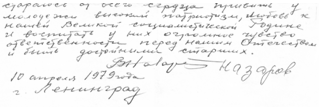 стараюсь от всего сердца привить у
молодёжи высокий патриотизм, любовь к
нашей Великой социалистической Родине
и воспитать у них огромное чувство
ответственности перед нашим Отечеством
и быть достойными старших.
Назаров
10 апреля 1979 года
г. Ленинград